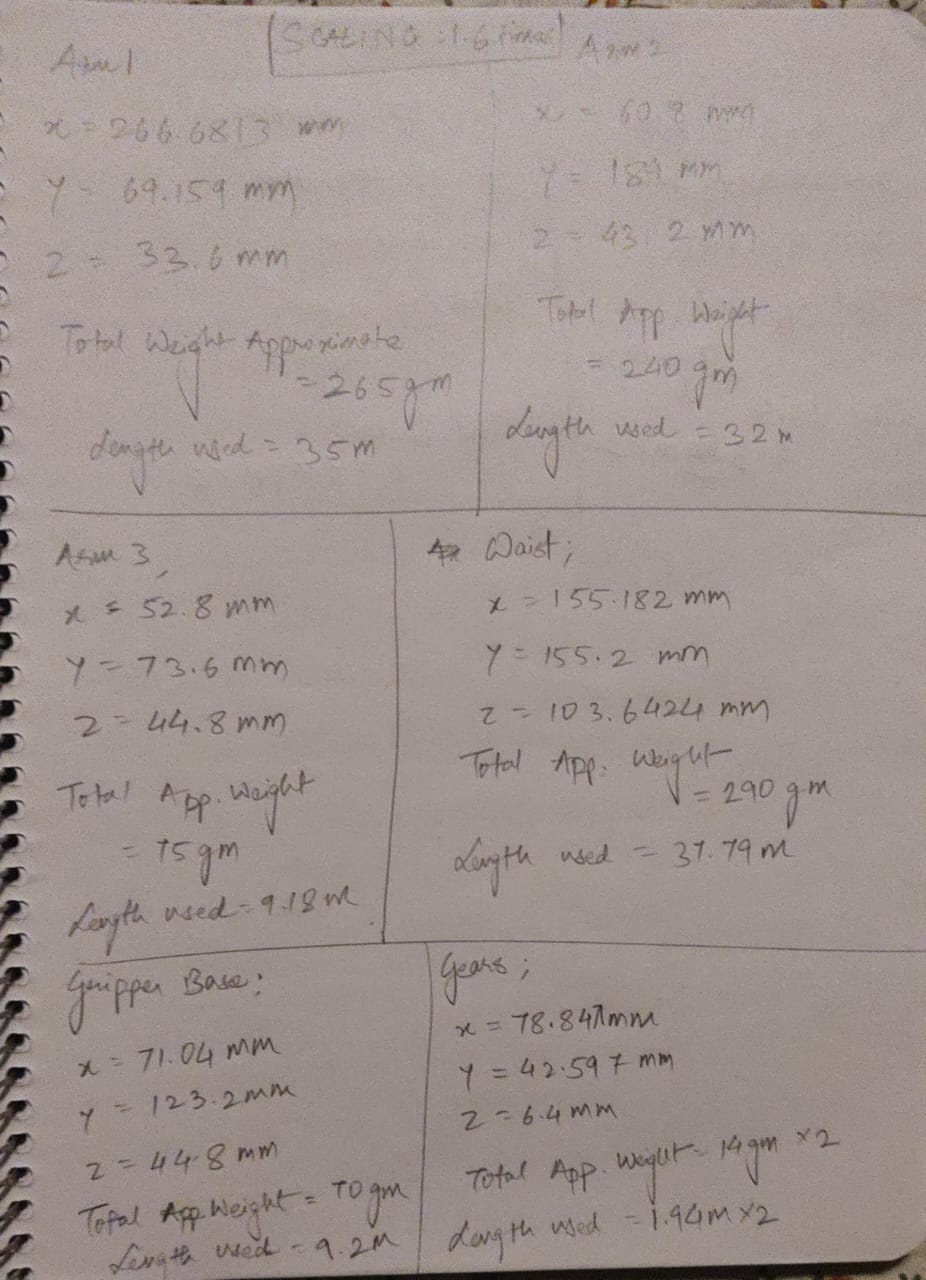 [SCALING : 1.6 times]
Arm 1
x = 266.6813 mm
y = 69.159 mm
z = 33.6 mm
Total Weight Approximate
= 265gm
Length used = 35m
Arm 2
x = 60.8 mm
y = 184 mm
z = 43.2 mm
Total App. Weight
= 240 gm
Length used = 32 m
Arm 3,
x = 52.8 mm
y = 73.6 mm
z = 44.8 mm
Total App. Weight
= 75gm
Length used = 9.18 m
Waist;
x = 155.182 mm
y = 155.2 mm
z = 103.6424 mm
Total App. Weight
= 290 gm
Length used = 37.79 m
Gripper Base:
x = 71.04 mm
y = 123.2 mm
z = 44.8 mm
Total App. Weight = 70 gm
Length used = 9.2m
Gears;
x = 78.847mm
y = 42.597 mm
z = 6.4 mm
Total App. Weight = 14gm x2
Length used = 1.94m x2